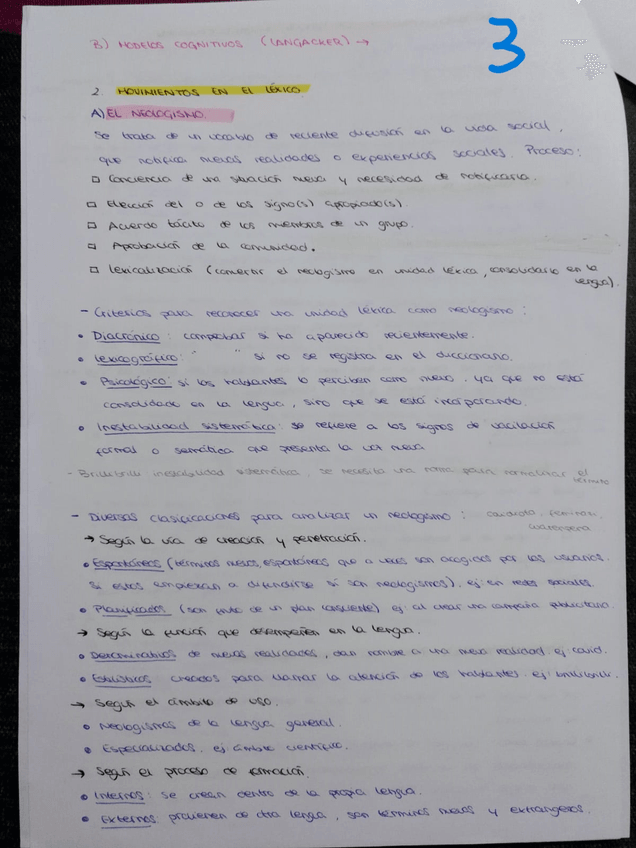 3
B) MODELOS COGNITIVOS (LANGACKER) →
2 MOVIMIENTOS EN EL LÉXICO
A) EL NEOLOGISMO.
Se trata de un vocablo de reciente difusión en la vida social,
que notifica nuevas realidades o experiencias sociales. Proceso:
□ Conciencia de una situación nueva y necesidad de notificarla.
□ Elección del o de los signo(s) apropiado(s).
□ Acuerdo tácito de los miembros de un grupo.
□ Aprobación de la comunidad.
□ Lexicalización (convertir el neologismo en unidad léxica, consolidarlo en la
lengua).
- Criterios para reconocer una unidad léxica como neologismo:
• Diacrónico: comprobar si ha aparecido recientemente.
• Lexicográfico: " " si no se registra en el diccionario.
• Psicológico: si los hablantes lo perciben como nuevo, ya que no está
consolidado en la lengua, sino que se está incorporando.
• Inestabilidad sistemática: se refiere a los signos de vacilación
formal o semática que presenta la voz nueva
- Brilibrili inestabilidad sistemática, se necesita una norma para normalizar el
término
- Diversas clasificaciones para analizar un neologismo:
→ Según la vía de creación y penetración.
• Espontáneos (términos nuevos, espontáneos que a veces son acogidos por los usuarios.
Si estos empiezan a difundirse sí son neologismos), ej en redes sociales.
• Planificados (son fruto de un plan consciente) ej al crear una campaña publicitaria.
→ Según la función que desempeñen en la lengua.
• Denominativos de nuevas realidades, dan nombre a una nueva realidad. ej covid.
• Estilísticos creados para llamar la atención de los hablantes. ej brilibrili.
→ Según el ámbito de uso.
• Neologismos de la lengua general.
• Especializados. ej ámbito científico.
→ Según el proceso de formación.
• Internos: se crean dentro de la propia lengua.
• Externos: provienen de otra lengua, son términos nuevos y extrangeros.